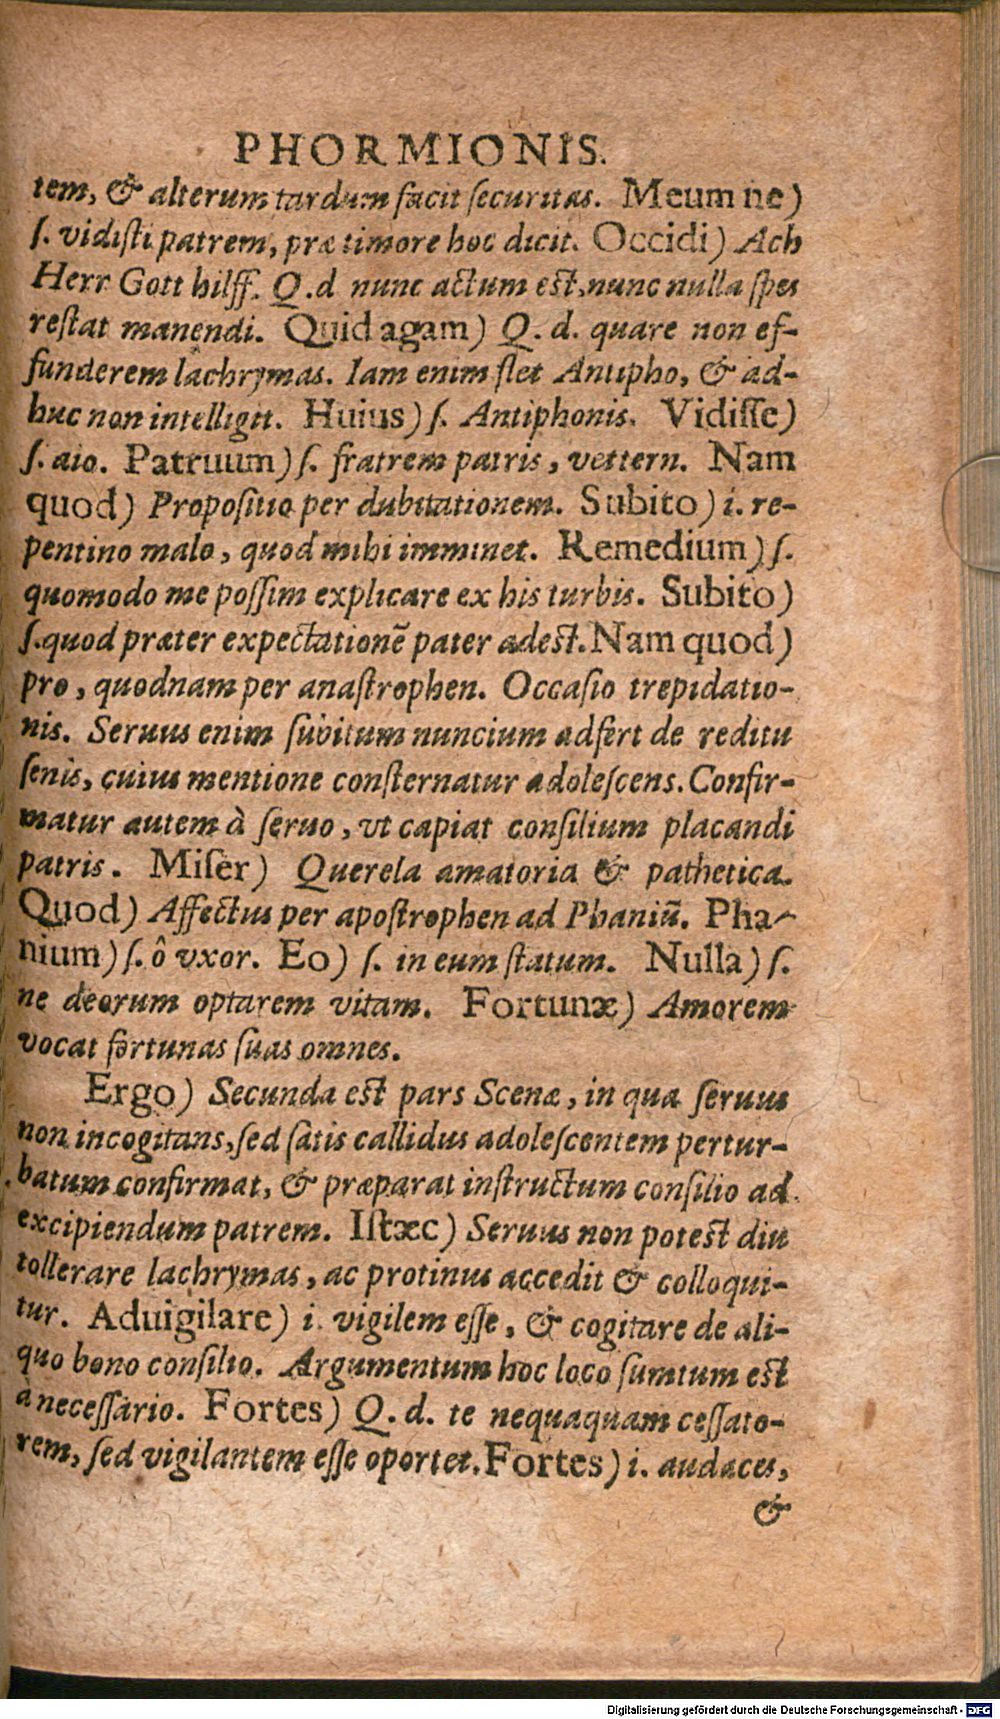 PHORMIONIS.
tem, & alterum tardum facit ſecuritas. Meum ne)
ſ. vidiſti patrem, præ timore hoc dicit. Occidi) Ach
Herr Gott hilff. Q.d nunc actum est, nunc nulla ſpes
reſtat manendi. Quid agam) Q. d. quare non ef-
funderem lachrymas. Iam enim flet Antipho, & ad-
huc non intelligit. Huius) ſ. Antiphonis. Vidiſſe)
ſ. aio. Patruum) ſ. fratrem patris, vettern. Nam
quod) Propoſitio per dubitationem. Subito) i. re-
pentino malo, quod mihi imminet. Remedium) ſ.
quomodo me poſſim explicare ex his turbis. Subito)
ſ. quod præter expectationẽ pater adest. Nam quod)
pro, quodnam per anaſtrophen. Occaſio trepidatio-
nis. Seruus enim ſubitum nuncium adfert de reditu
ſenis, cuius mentione conſternatur adoleſcens. Confir-
matur autem à ſeruo, vt capiat conſilium placandi
patris. Miſer) Querela amatoria & pathetica.
Quod) Affectus per apoſtrophen ad Phaniũ. Pha-
nium) ſ. ô vxor. Eo) ſ. in eum ſtatum. Nulla) ſ.
ne deorum optarem vitam. Fortunæ) Amorem
vocat fortunas ſuas omnes.
Ergo) Secunda est pars Scenæ, in qua ſeruus
non incogitans, ſed ſatis callidus adoleſcentem pertur-
batum confirmat, & præparat inſtructum conſilio ad
excipiendum patrem. Iſtæc) Seruus non potest diu
tollerare lachrymas, ac protinus accedit & colloqui-
tur. Aduigilare) i. vigilem eſſe, & cogitare de ali-
quo bono conſilio. Argumentum hoc loco ſumtum est
à neceſſario. Fortes) Q. d. te nequaquam ceſſato-
rem, ſed vigilantem eſſe oportet. Fortes) i. audaces,
&
Digitalisierung gefördert durch die Deutsche Forschungsgemeinschaft - DFG